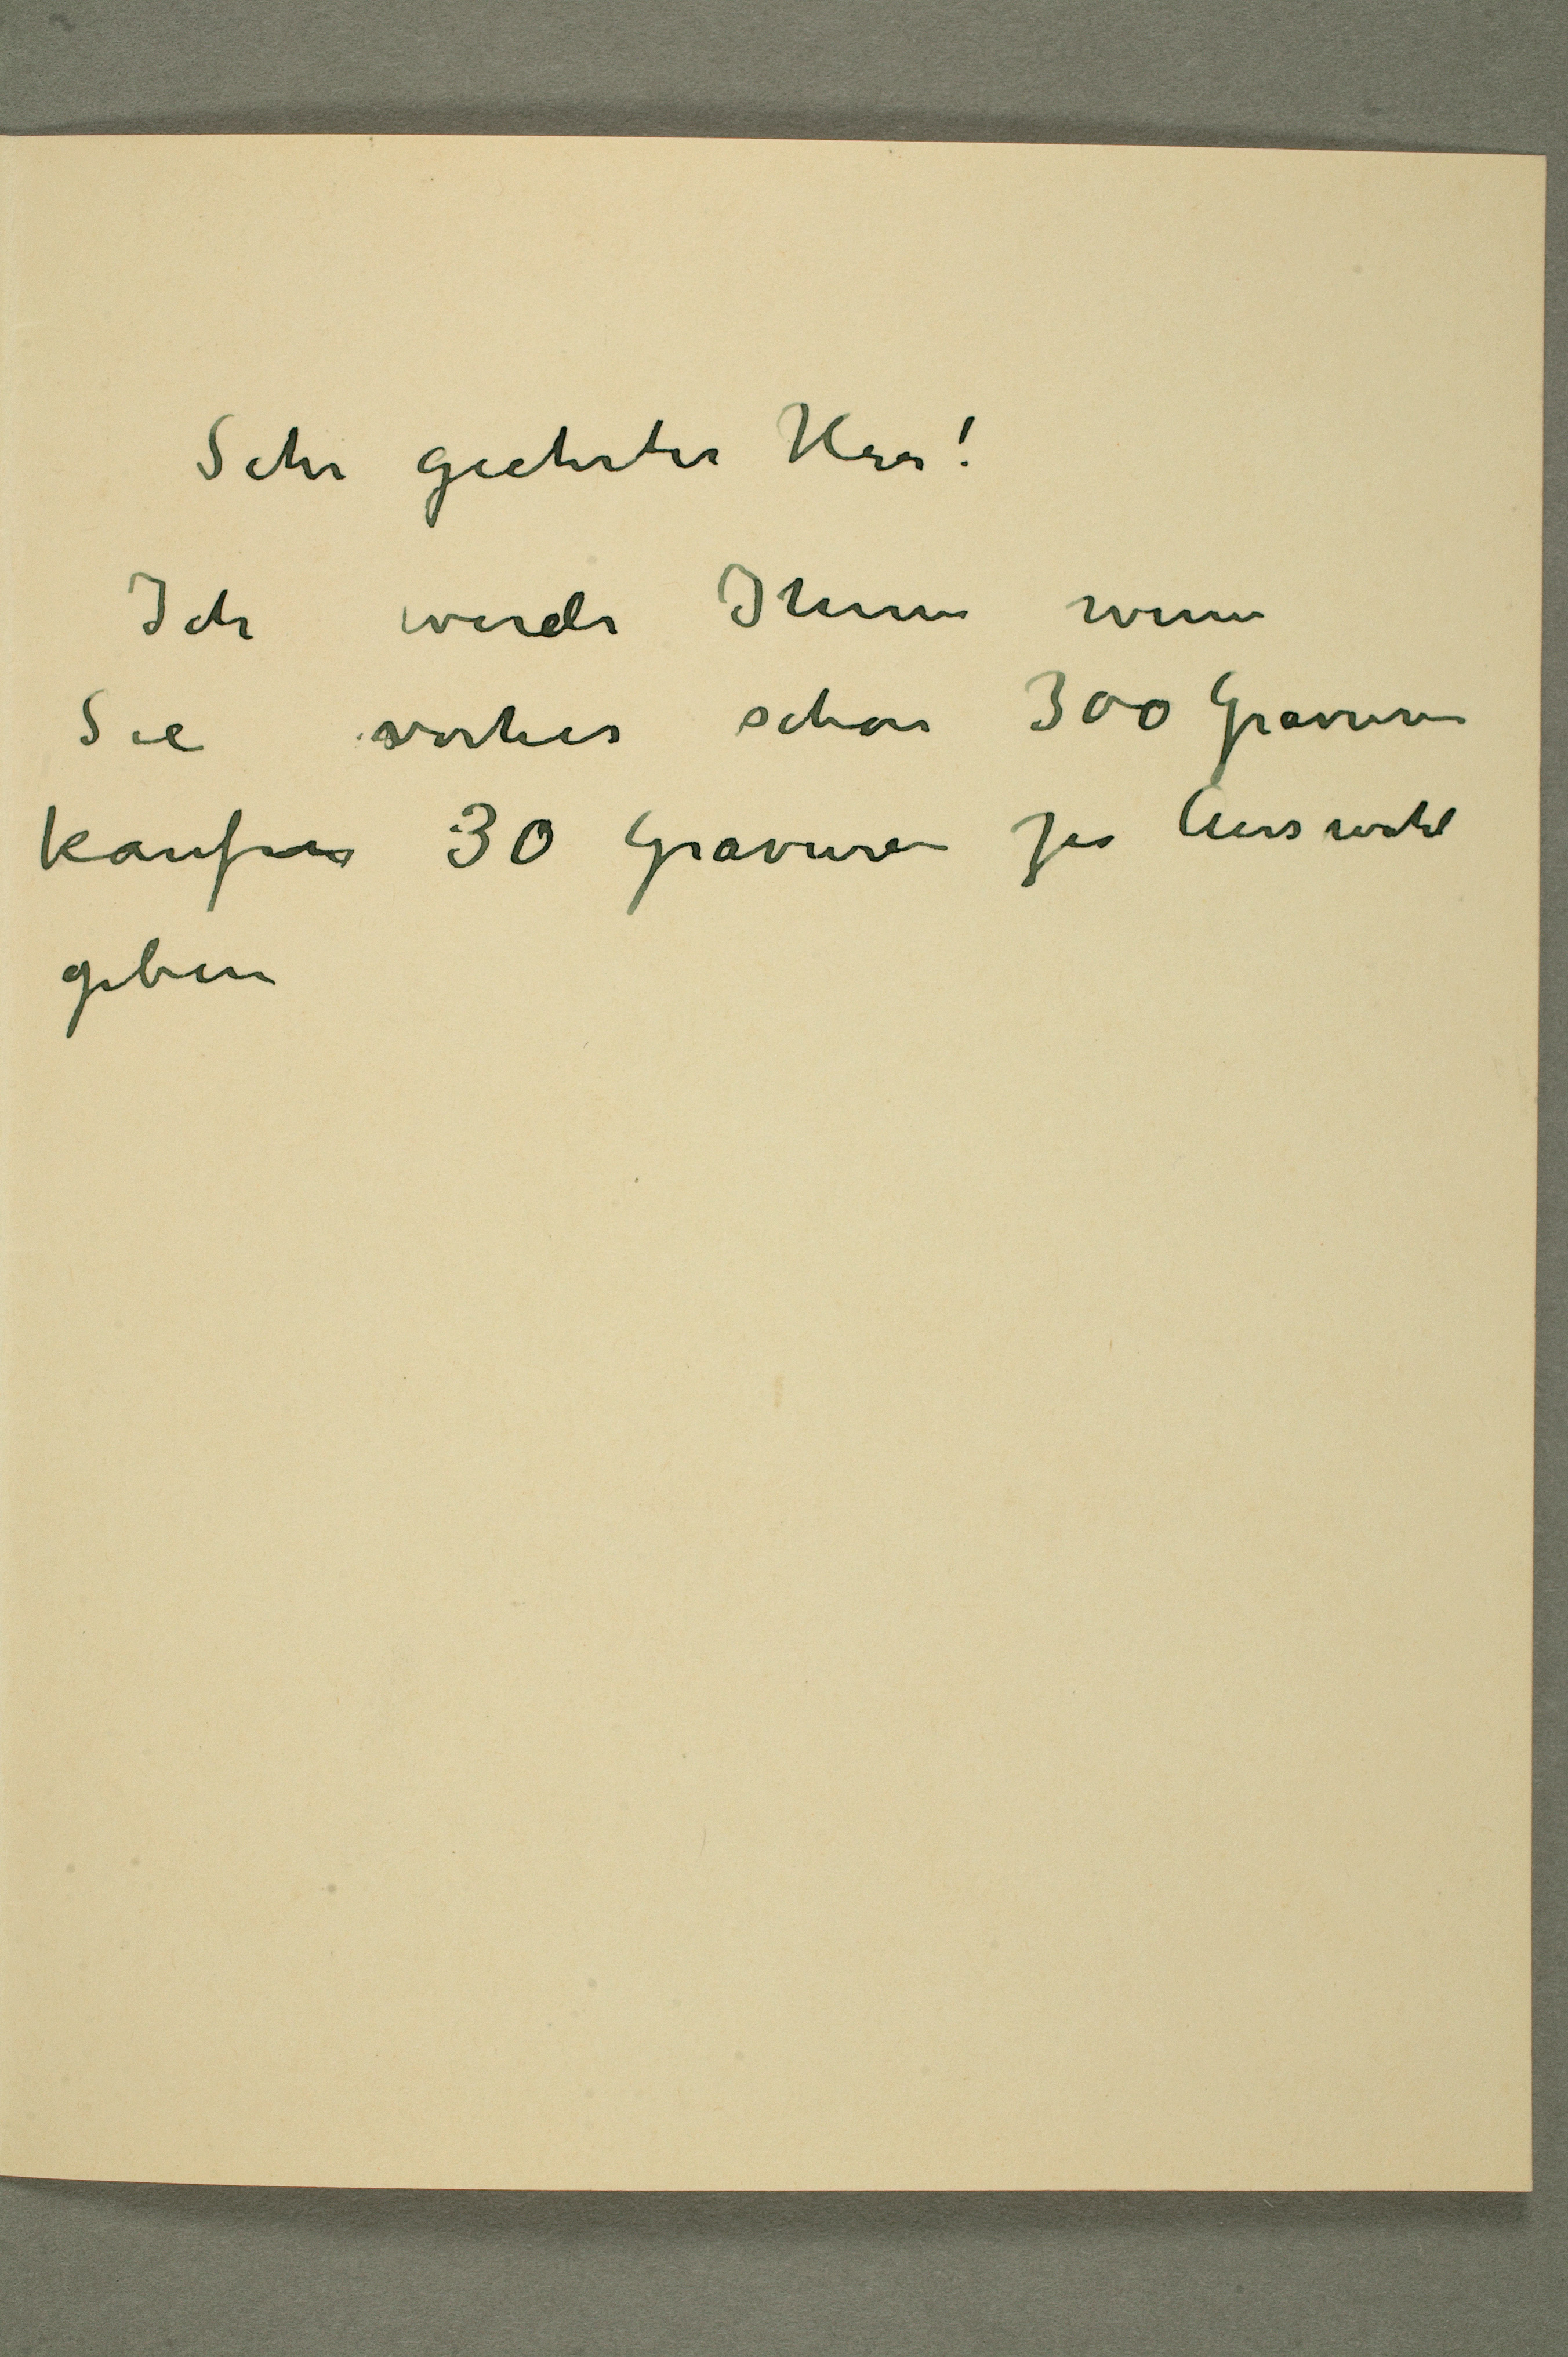 Sehr geehrter Herr!
Ich werde Ihnen wenn
Sie vorher schon 300 Gravuren
kaufen 30 Gravuren zur Auswahl
geben